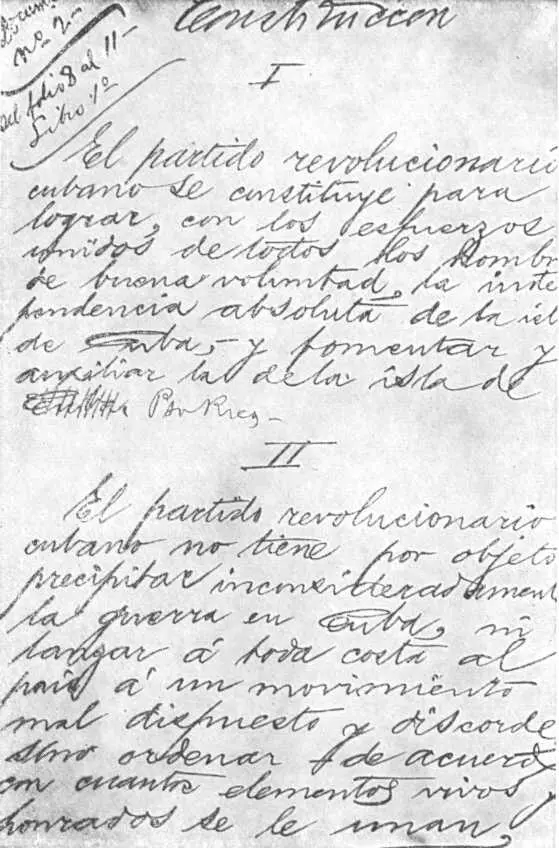 Docum
nº 2
Del folio 8 al 11-
Libro 1º
Constitucion
I
El partido revolucionario
cubano se constituye para
lograr, con los esfuerzos
unidos de todos los hombr
de buena voluntad, la inde
pendencia absoluta de la isl
de Cuba,- y fomentar y
auxiliar la de la isla de
Pto Rico-
II
El partido revolucionario
cubano no tiene por objeto
precipitar inconsideradament
la guerra en Cuba, ni
lanzar á toda costa al
pais á un movimiento
mal dispuesto y discorde
sino ordenar de acuerdo
con cuantos elementos vivos y
honrados se le unan,